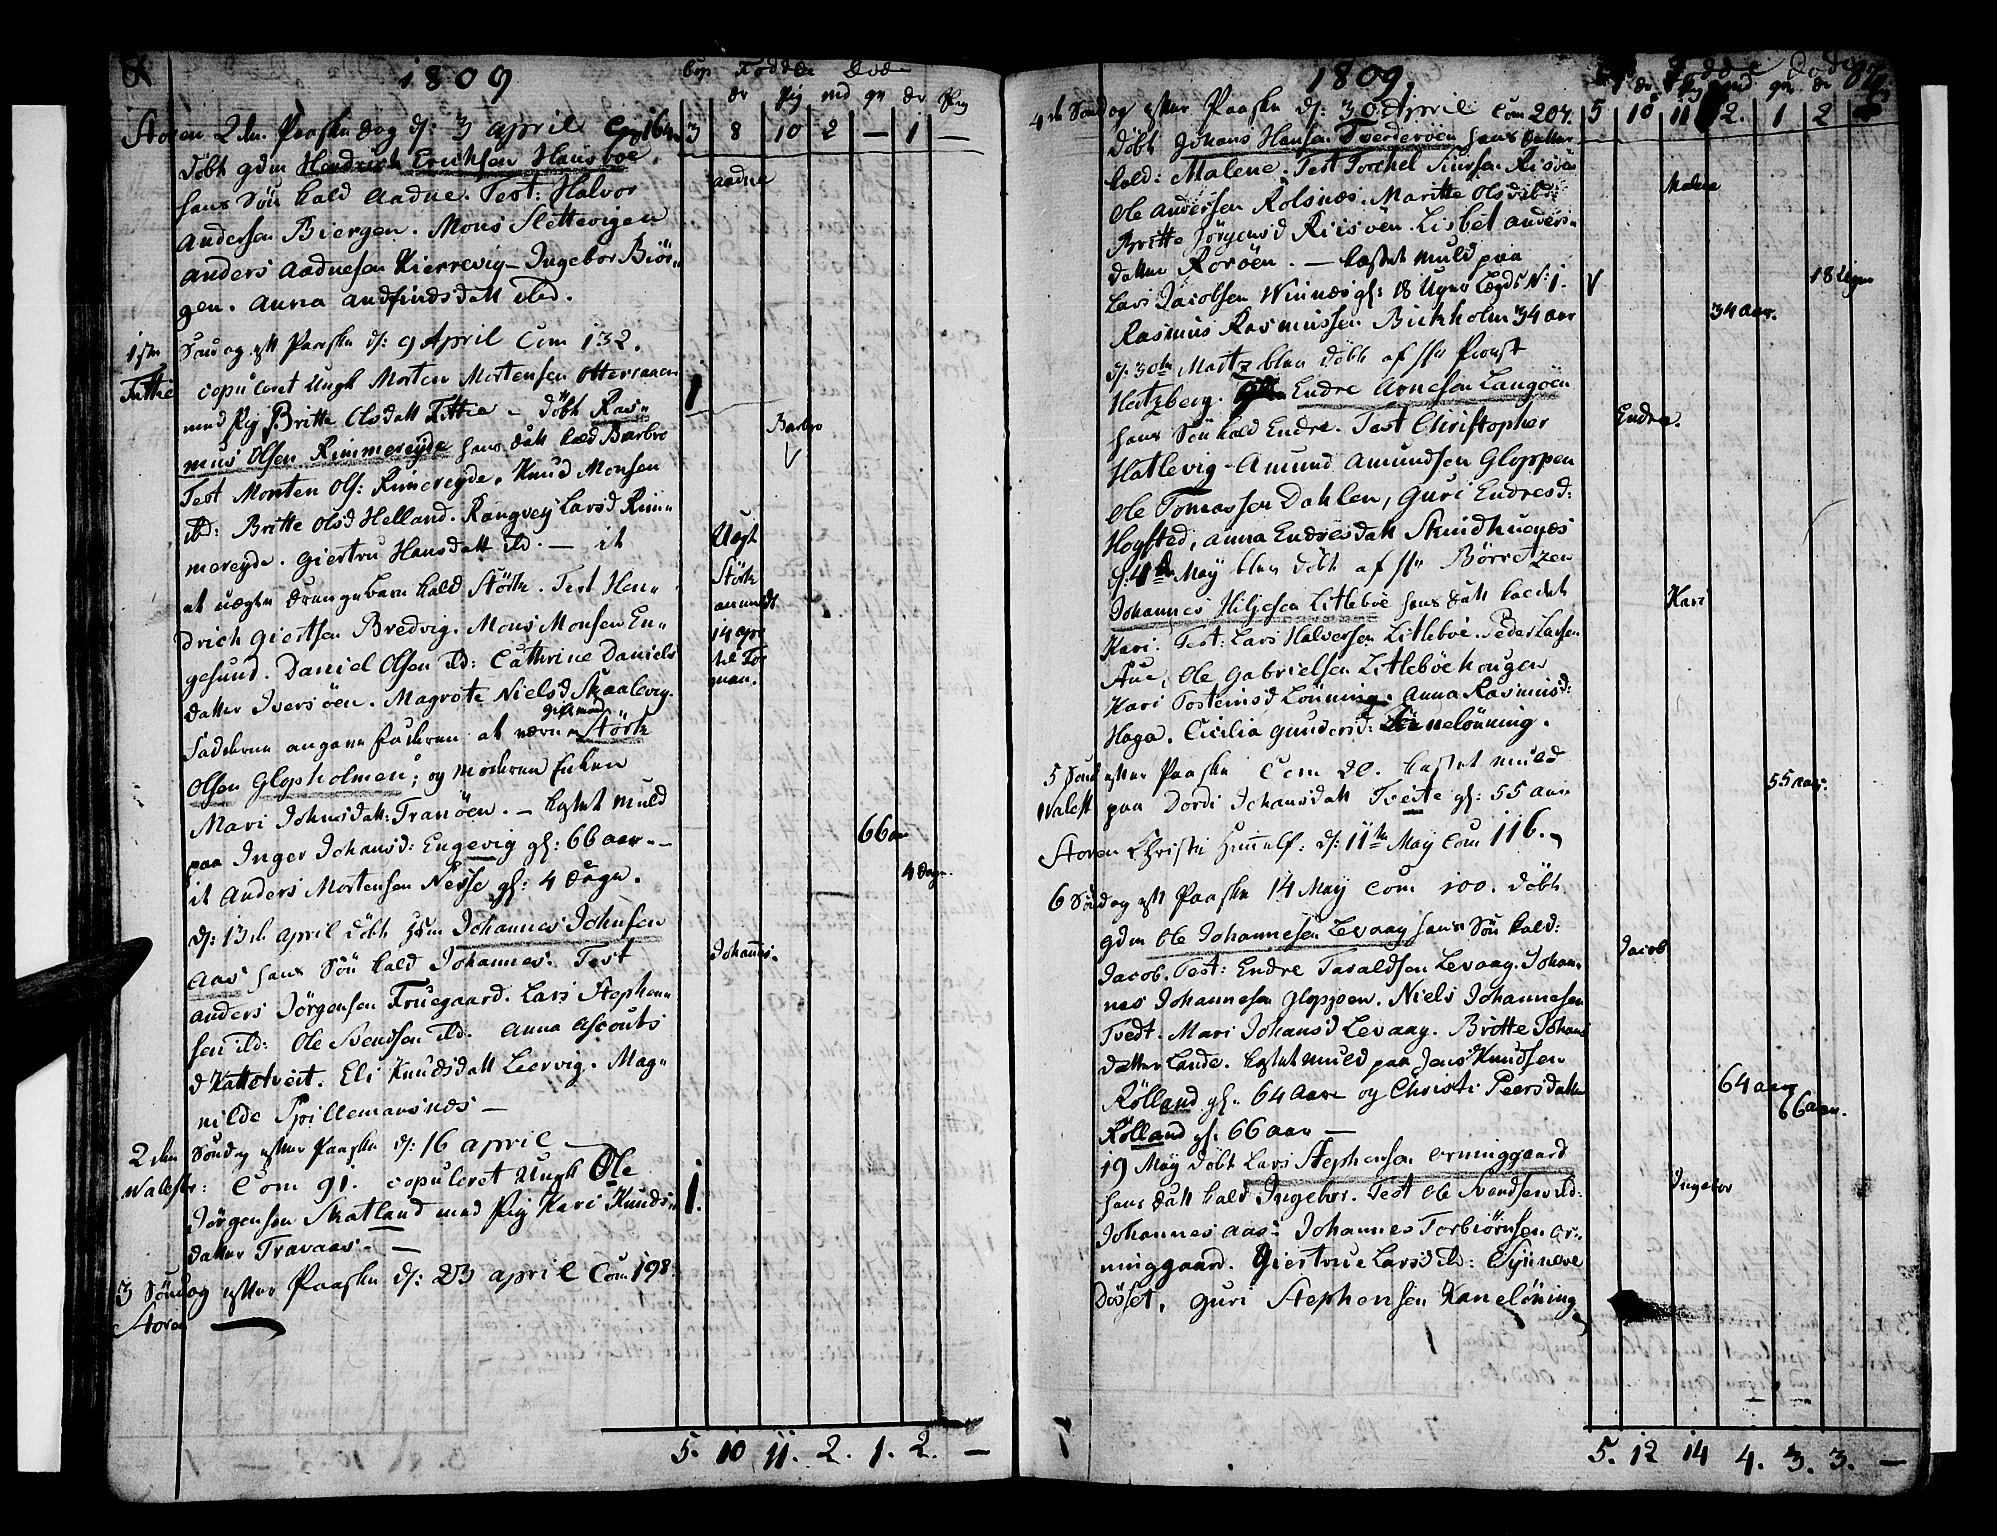 1809
Cop Fødde Døde
dr Pig md qv dr Pig
Storen 2den Paaske dag d: 3 april Com 164 3 8 10 2 — 1 —
døbt gdm Hendrich Erichsen Hansboe
hans Søn kald Aadne. Test: Halvor
aadne
Andersen Biergen. Mons Slettevigen
anders Aadnesen Kierrevig - Ingebor Biör-
gen. Anna andfindsdatt ibd.
1ste Søndag eft Paaske d: 9 April Com 132.
Fittie copuleret Ungk Morten Mortensen Otteraaen 1
med Pig Britte Olsdatt Fittie - døbt Ras-
mus Olsen Rimmereyde hans datt kald Barbro
Barbro
Test Monten Ols: Rimereyde. Knud Monsen
ibd: Britte Olsd Helland. Rangvey Larsd Rim-
mereyde. Giertru Hansdatt ibd. — it
Uægt
at uægte drengebarn kald Störk. Test Hen-
Störk
drich Giertsen Bredvig. Mons Monsen En-
gesund. Daniel Olsen ibd: Cathrine Daniels
datter Iversöen. Magrete Nielsd Skaalevig.
Faderen angaves at være gift mand Störk
Olsen Glopholmen; og moderen Enken
Mari Johnsdatt: Tranöen. — kastet muld
paa Inger Johansd: Engevig gl: 66 aar. -
66 aar
it Anders Mortensen Nesse gl: 4 dage.
4 dage.
d: 13de april döbt Hsm Johannes Johnsen
Aas hans Søn kald Johannes. Test
Johannes.
anders Jörgensen Fruegaard. Lars Stephen-
sen ibd: Ole Svendsen ibd. Anna Ascouts
d Hattetveit. Eli Knudsdatt Leervig. Mag-
nilde Spillemansnæs —
2den Søndag efter Paaske d: 16 april
Walestr: Com 91. copuleret Ungk Ole
Jörgensen Skatland med Pig Kari Knuds- 1.
datter Travaas. —
3 Søndag efter Paaske d: 23 april Com 198.
Storen
5. 10 11. 2. 1. 2. —
1809.
4de Søndag efter Paaske d: 30 April Com 207. 5 10 11 2. 1 2
döbt Johans Hansen Sverderöen hans datter
kald: Malene. Test Torchel Siursen Risöe
Malene
Ole Andersen Rolsnæs. Maritte Olsd ibd:
Britte Jörgensd Riisöen. Lisbet anders-
datter Roröen. — kastet muld paa
Lars Jacobsen Winnes gl: 18 Uger Lægds N: 1.
18 Uger
Rasmus Rasmussen Bickholm 34 aar
34 aar.
d: 30te Martz blev döbt af Hr Provst
Hertzberg. Endre Arnesen Langöen
hans Søn kald Endre. Test Christopher
Endre.
Hatlevig - Amund Amundsen Gloppen
Ole Tomassen Dahlen, Guri Endresd:
Hoysted, Anna Endresdatt Smidhuenæs
d: 4de May blev döbt af Hr Börretzen
Johannes Hiljesen Litleböe hans datt kaldet
Kari
Kari. Test: Lars Halversen Litleböe. Peder Larsen
Aue, Ole Gabrielsen Litleböehougen
Kari Tostensd Lönning. Anna Rasmusd:
Haga. Cicilia Gundersd: Kanelönning.
5 Sönd efter Paaske Com 20. kastet muld
Walestr paa Dordi Johansdatt Tveite gl: 55 aar
55 aar.
Storen Christi Himelf: d: 11te May Com 116.
6 Søndag eft Paaske 14 May Com 100. döbt
gdm Ole Johannesen Levaag hans Søn kald:
Jacob
Jacob. Test: Endre Taraldsen Levaag. Johan-
nes Johannesen Gloppen. Niels Johannesen
Tvedt. Mari Johansd Levaag. Britte Johans
datter Lande. kastet muld paa Jens Knudsen
Rölland gl. 64 aar og Christi Peersdatter
64 aar
Rölland gl. 66 aar —
66 aar.
19 May döbt Lars Stephensen Orninggaard
hans datt kald Ingebor. Test Ole Svendsen ibd:
Ingebor
Johannes Aas - Johannes Torbiörnsen Or-
ninggaard. Giertrue Larsd ibd: Synneve
Döset. Guri Stephensen Kanelöning
5. 12 14 4. 3. 3. —